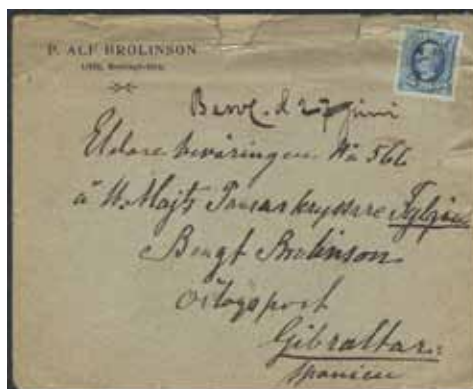 P. ALF BROLINSON
d 27 juni
Eldare beväringen No 566
à H. Majts Pansarkryssare Fylgia
Bengt Brolinson
Örlogspost
Gibraltar
Spanien